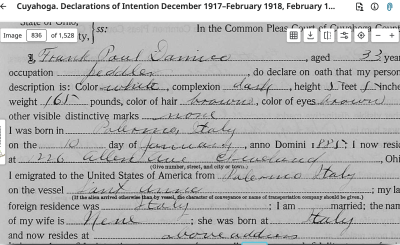 Cuyahoga. Declarations of Intention December 1917–February 1918, February 1...
State of Ohio, ss: In the Common Pleas Court of Cuyahoga County
Image 836 of 1,528 ty,
I, Frank Paul Damico, aged 33 year
occupation peddler, do declare on oath that my person
description is: Color white, complexion dark, height 5 feet inche
weight 165 pounds, color of hair brown, color of eyes brown
other visible distinctive marks none
I was born in Palermo, Italy
on the 10 day of January, anno Domini 1885; I now resid
at 1226 Allen Ave Cleveland, Ohi
(Give number, street, and city or town.)
I emigrated to the United States of America from Palermo Italy
on the vessel; my la
(If the alien arrived otherwise than by vessel, the character of conveyance or name of transportation company should be given.)
foreign residence was Italy; I am married; the nam
of my wife is; she was born at Italy
and now resides at above address